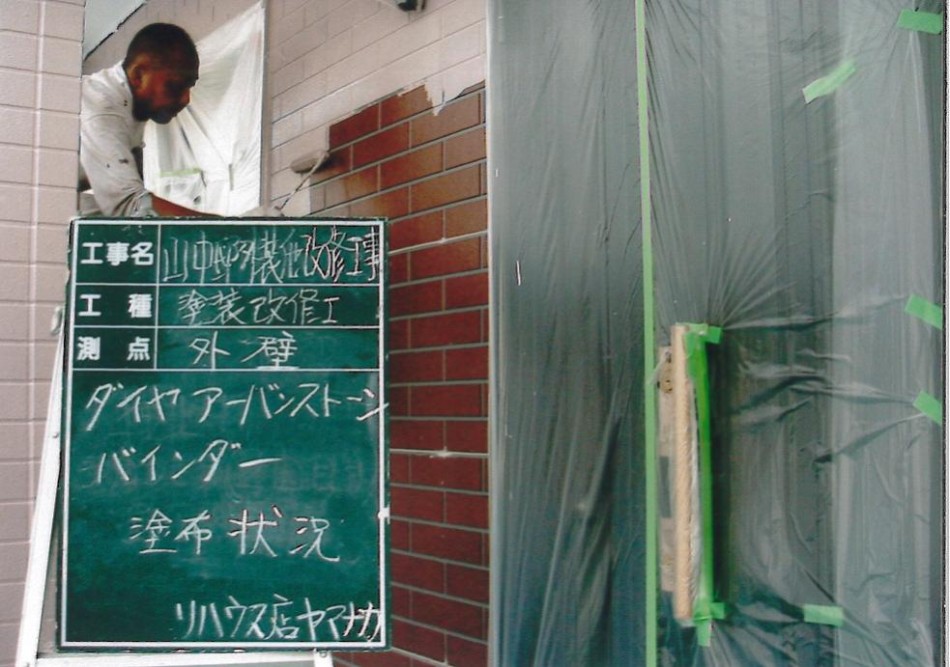 工事名 山中邸外残他改修工事
工種 塗装改修工
測点 外壁
ダイヤアーバンストーン
バインダー
塗布状況
リハウス店ヤマナカ